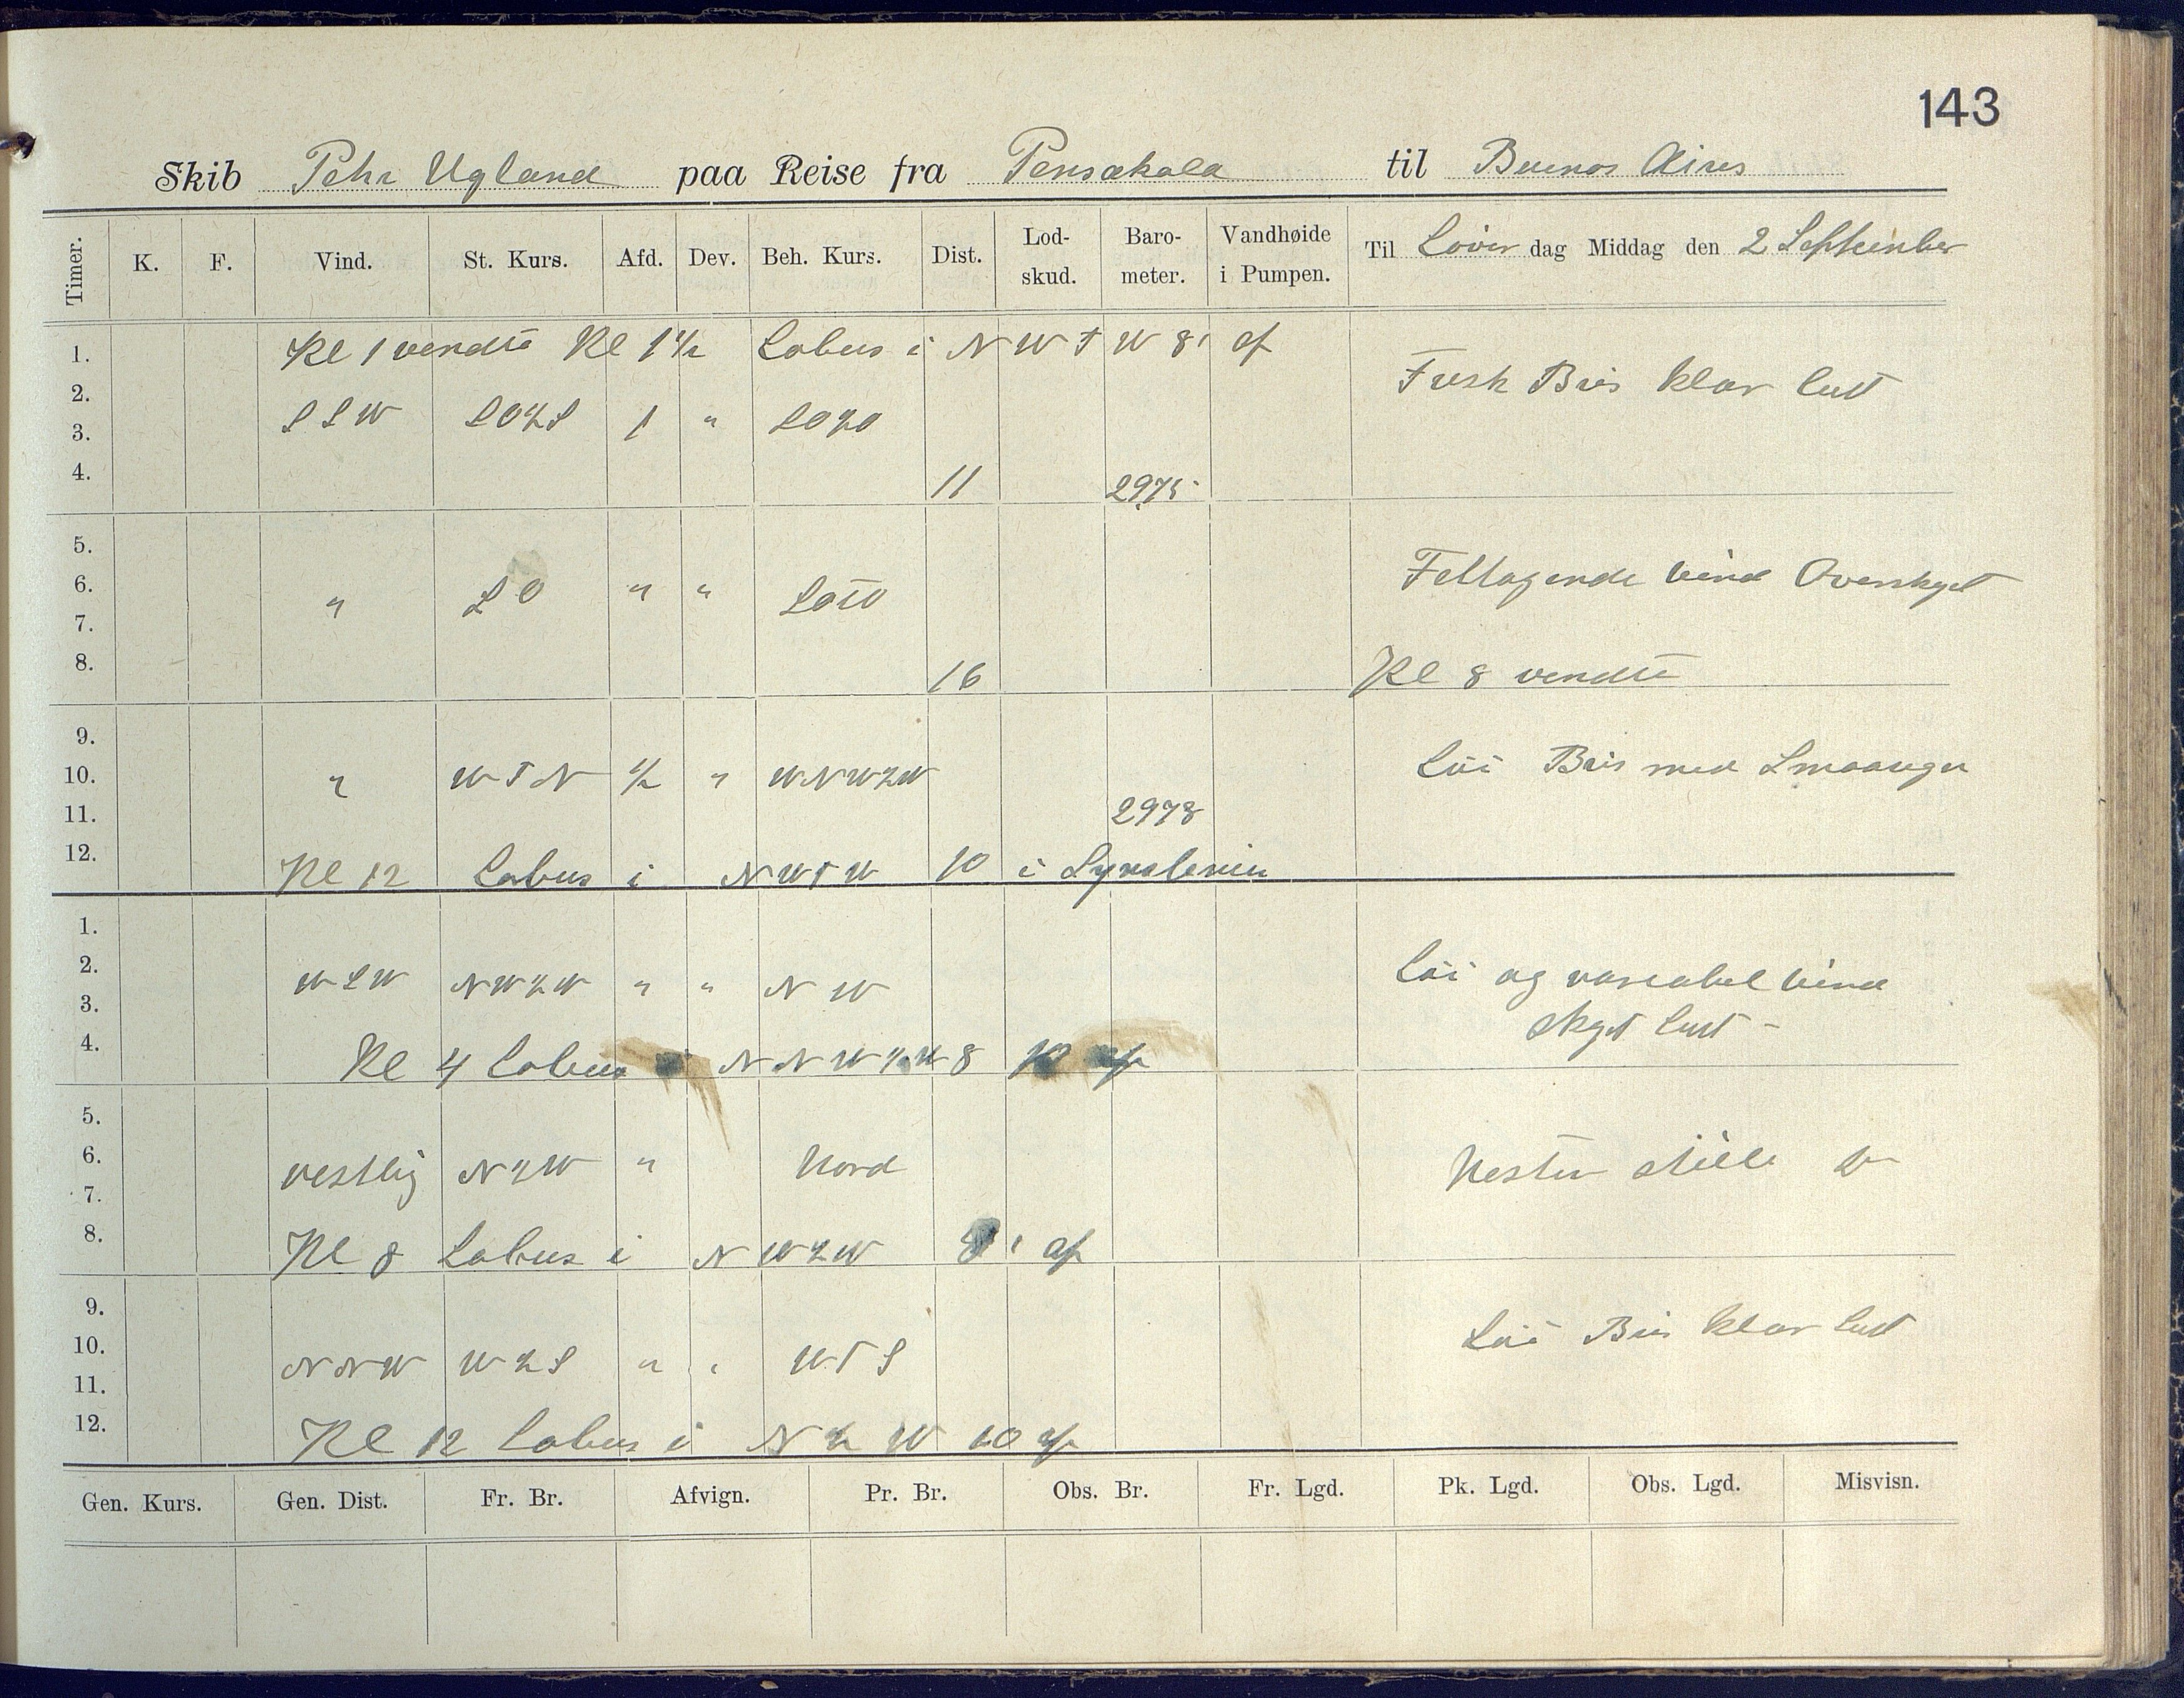 143
Skib Pehr Ugland paa Reise fra Pensakola til Buenos Aires
Timer. K. F. Vind. St. Kurs. Afd. Dev. Beh. Kurs. Dist. Lod-skud. Baro-meter. Vandhøide i Pumpen. Til Löver dag Middag den 2 September
1. Kl 1 vendte Kl 1 1/2 Lobus i N W T W 8' af
2. Frsk Bris klar luft
3. S S W SO½S 1 " SO½O
4. 11 2975
5.
6. " SO " " SOTO Fellagende vind Overskyet
7.
8. 16 Kl 8 vendte
9.
10. " W T N ½ " WNW½W Löi Bris med Smaaregn
11. 2978
12. Kl 12 Lobus i NWTW 10 i Synslenien
1.
2. W S W NW½W " " N W Löi og vareabel vind
3. skyet luft -
4. Kl 4 Lobus NNW½W 8 af
5.
6. vestlig N½W " Nord Nesten stille
7.
8. Kl 8 Lobus i NW½W 8' af
9.
10. NNW W½S " " WTS Löi Bris klar luft
11.
12. Kl 12 Lobus i N ½ W 10 af
Gen. Kurs. Gen. Dist. Fr. Br. Afvign. Pr. Br. Obs. Br. Fr. Lgd. Pk. Lgd. Obs. Lgd. Misvisn.